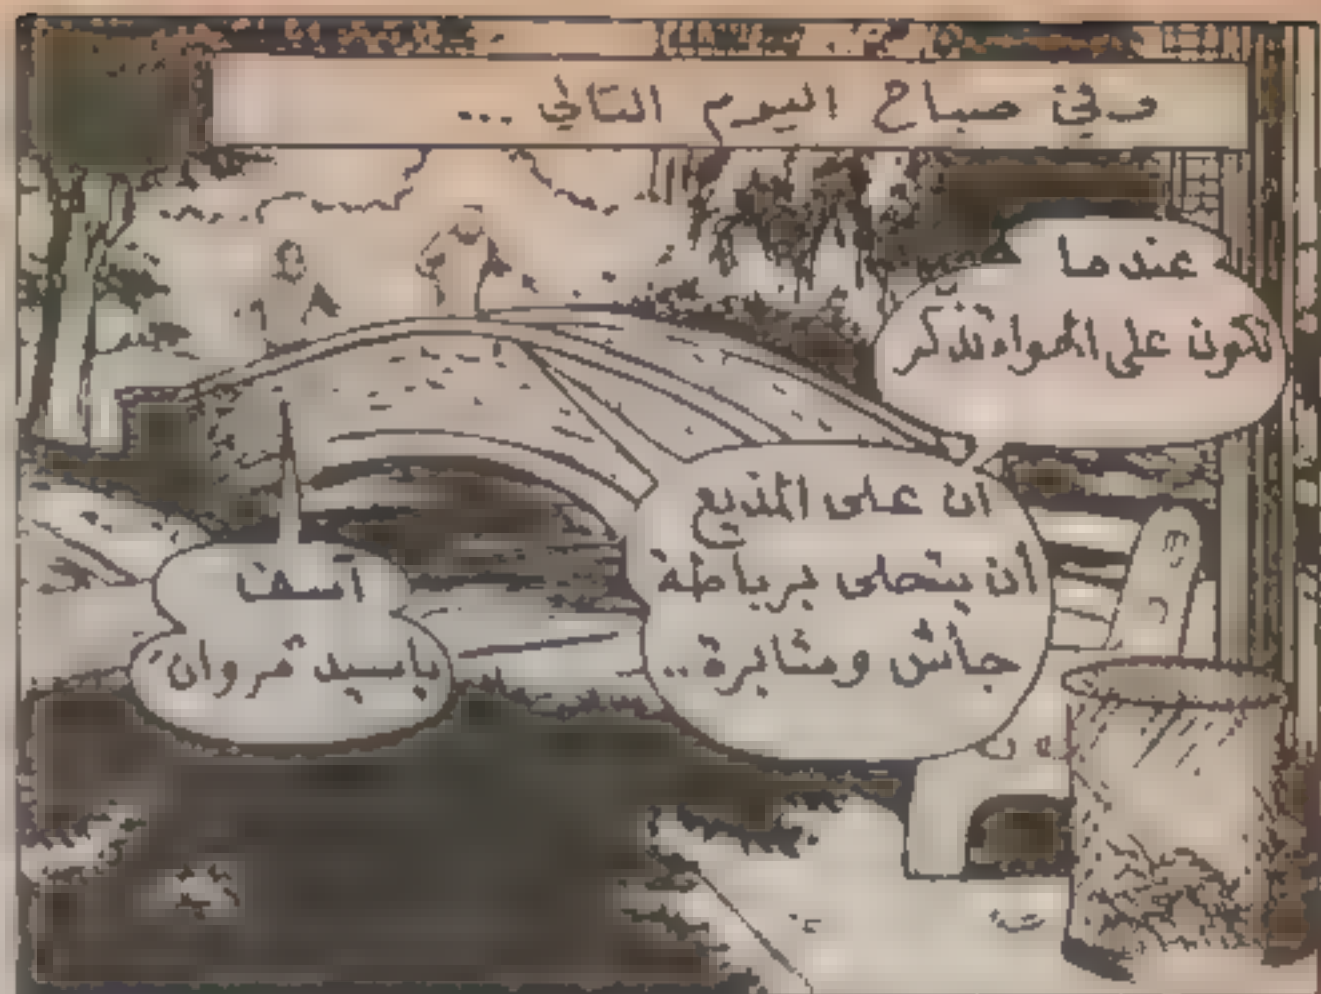 وفي صباح اليوم التالي ...
عندما
تكون على الهواء تذكر
ان على المذيع
ان يتحلى برباطة
جاش ومثابرة..
آسف
ياسيد مروان